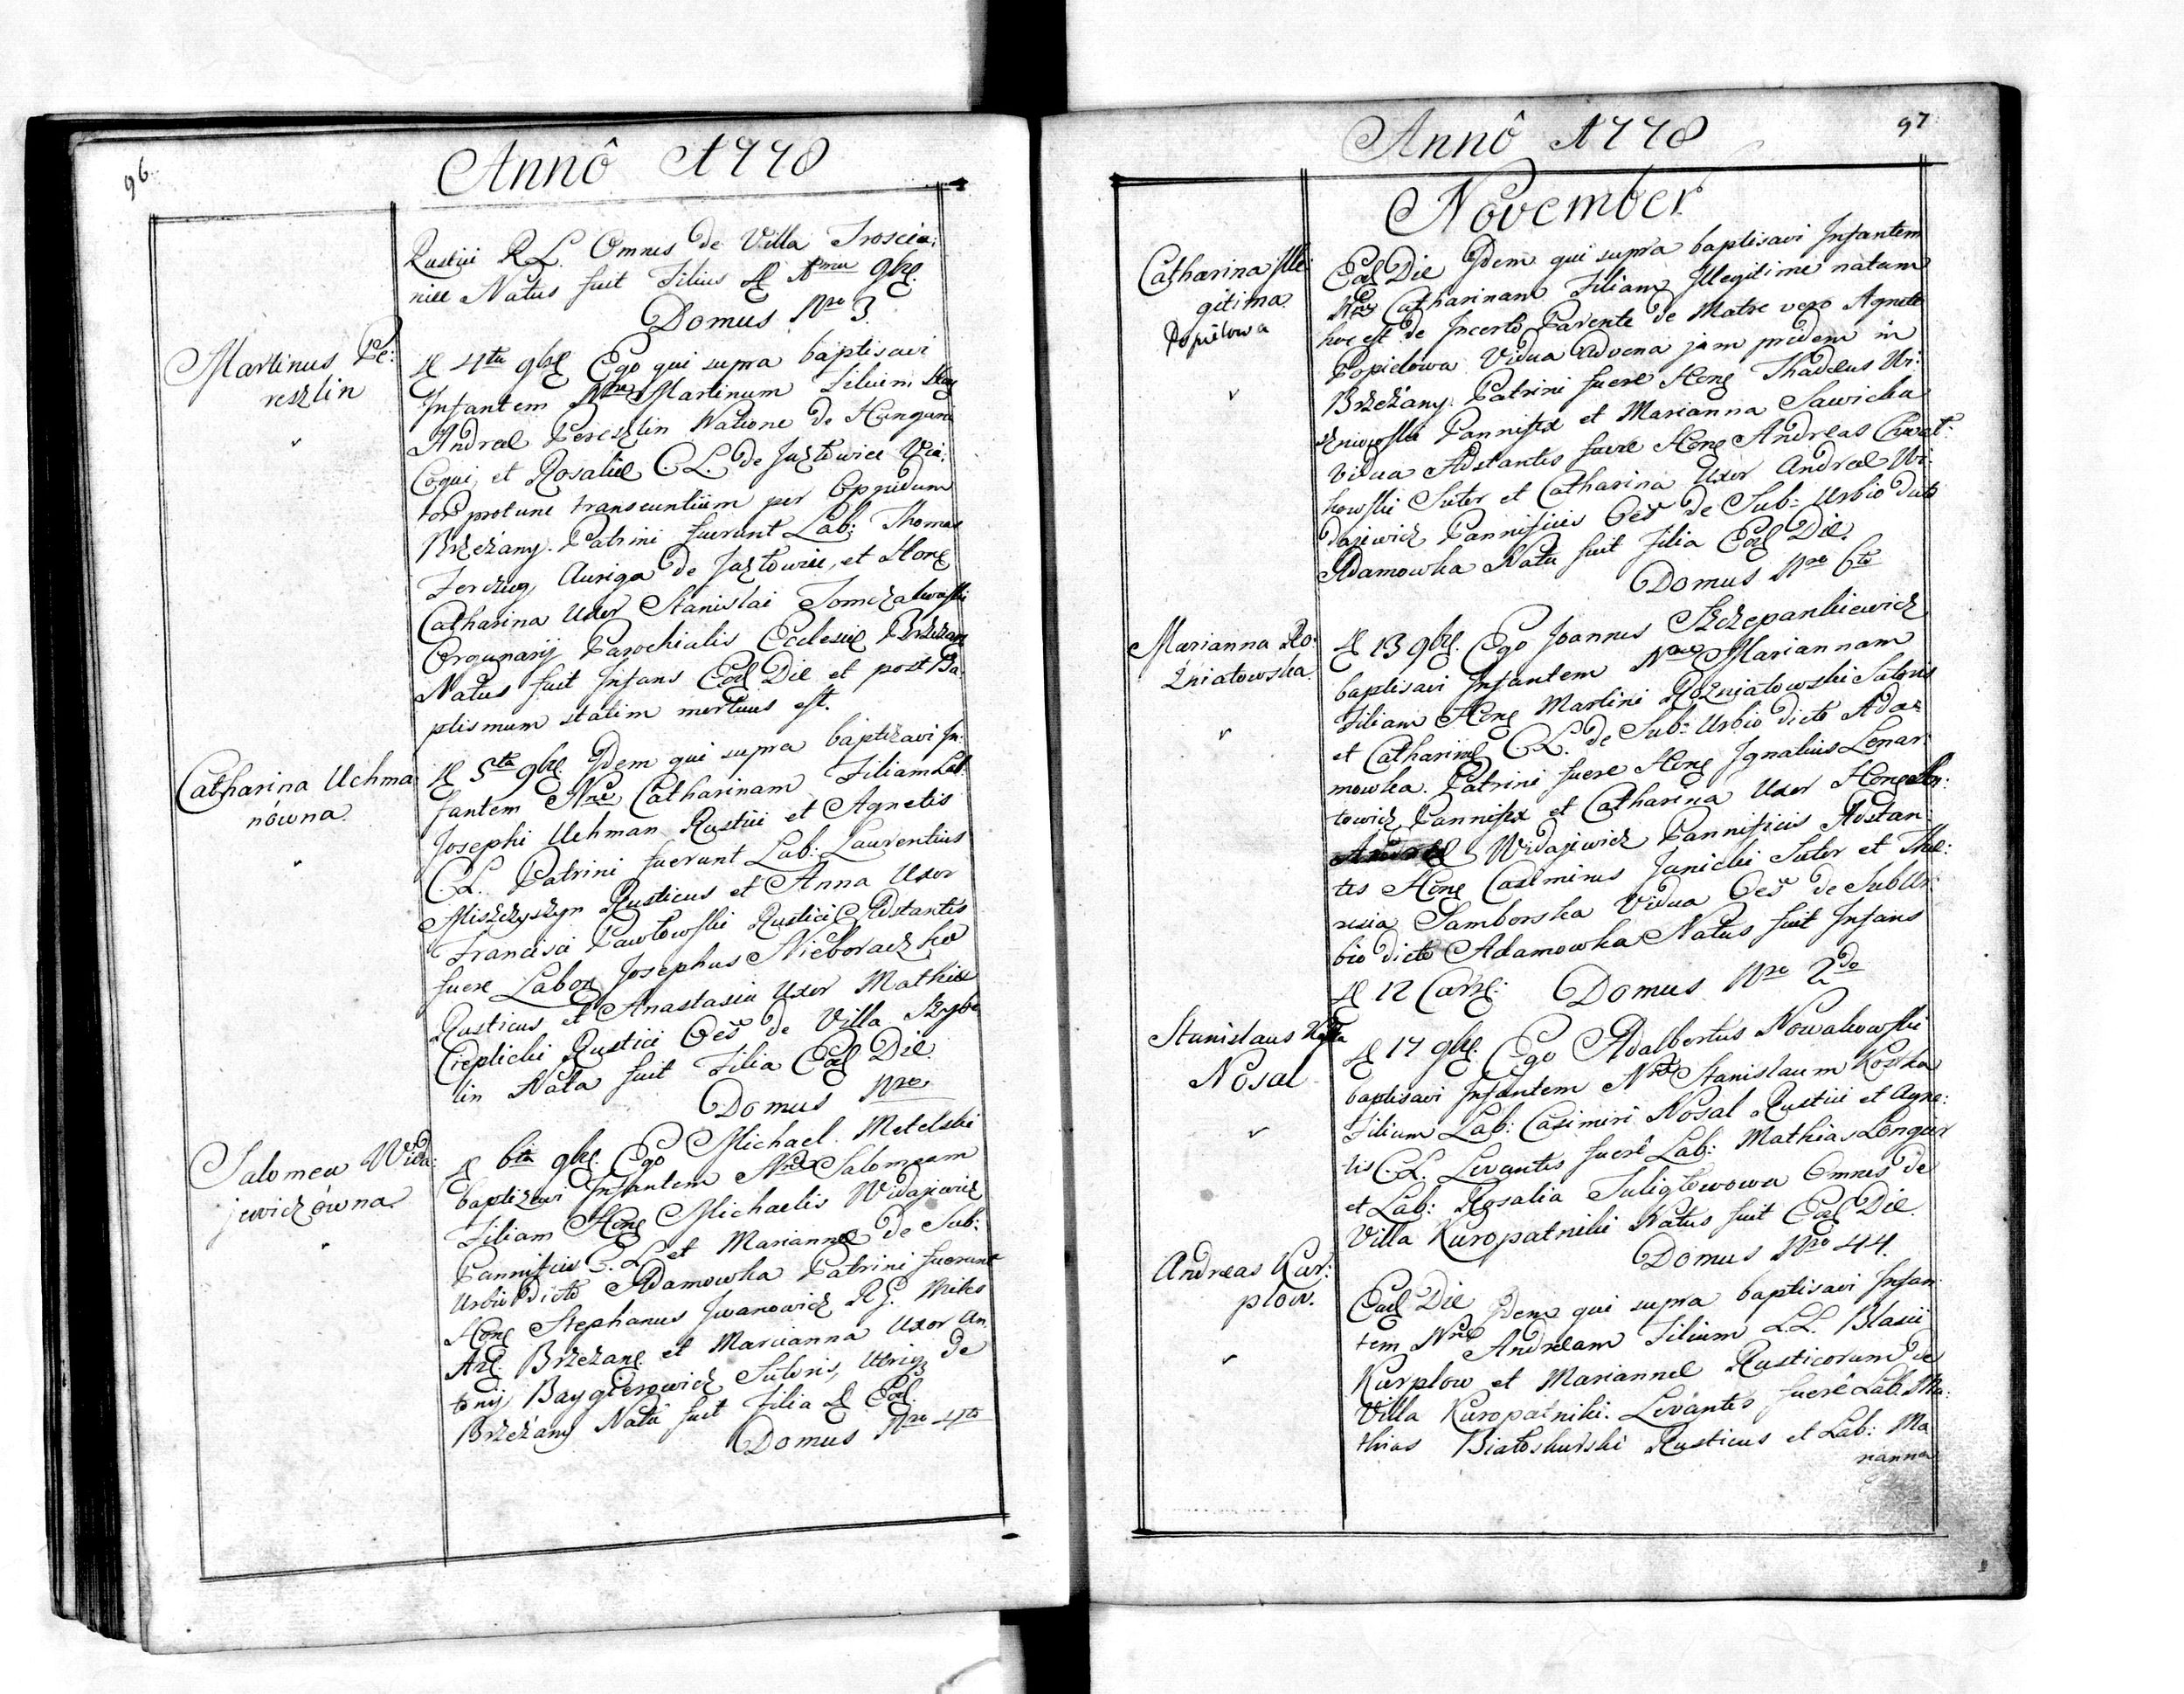 96.
Annô 1778
Rustici R.L. Omnes de Villa Troscia:
niec Natus fuit Filius D 1ma 9bris
Domus Nro 3.
Martinus Pe:
reszlin
D 4ta 9bris Ego qui supra baptisavi
Infantem Nne Martinum Filium
Andreæ Pereszlin Natione de Hungaria
Coqui, et Rosaliæ C.L. de Jazłowiec Via:
tor protunc transeuntium per Oppidum
Brzeżany. Patrini fuerunt Lab: Thomas
Auriga de Jazłowiec, et Hones
Catharina Uxor Stanislai Tomczakowski
Organarij Parochialis Ecclesiæ Brzezan
Natus fuit Infans Ead Die et post Ba:
ptismum statim mortuus est.
Catharina Uchma
nówna
D 5ta 9bris Idem qui supra baptizavi In:
fantem Nne Catharinam Filiam Lab:
Josephi Uchman Rustici et Agnetis
C.L. Patrini fuerunt Lab: Laurentius
Miszczyszyn Rusticus et Anna Uxor
Francisci Pawłowski Rustici Adstantes
fuere Labor Josephus Nieboraczko
Rusticus et Anastasia Uxor Mathiæ
Cieplicki Rustici Oes de Villa Szyba
lin Nata fuit Filia Ead Die
Domus Nro
Salomea Wida:
jewiczówna
D 6ta 9bris Ego Michael Metelski
baptizavi Infantem Nne Salomeam
Filiam Hones Michaelis Widajewicz
Pannificis C.L. et Mariannæ de Sub:
Urbio dicto Adamowka Patrini fuerunt
Hones Stephanus Iwanowicz R.G. Miles
Brzezans et Marianna Uxor An:
tonij Baygierowicz Sutoris, Utrius de
Brzeżany Nata fuit Filia D Ead
Domus Nro 4to
97
Annô 1778
November
Catharina Ille:
gitima
Popielowa
Ead Die Idem qui supra baptisavi Infantem
Nne Catharinam Filiam Illegitime natam
hoc est de Incerto Parente de Matre vero Agnete
Popielowa Vidua Advena jam pridem in
Brzeżany. Patrini fuere Hones Thadeus Wi:
szniowski Pannifex et Marianna Sawicka
Vidua Adstantes fuere Hones Andreas Chwat:
kowski Sutor et Catharina Uxor Andreæ Wi:
dajewicz Pannificis Oes de Sub: Urbio dicto
Adamowka Nata fuit Filia Ead Die.
Domus Nro 6to
Marianna Ro:
żniatowska
D 13 9bris. Ego Joannes Szczepankiewicz
baptisavi Infantem Nne Mariannam
Filiam Hones Martini Rożniatowski Sutoris
et Catharinæ C.L. de Sub: Urbio dicto Ada=
mowka. Patrini fuere Hones Ignatius Lenar:
towicz Pannifex et Catharina Uxor Hones An:
Widajewicz Pannificis Adstan:
tes Hones Casimirus Janicki Sutor et The:
resia Samborska Vidua Oes de SubUr:
bio dicto Adamowka Natus fuit Infans
D 12 Curr: Domus Nro 2do
Stanislaus Kostka
Nosal
D 17 9bris. Ego Adalbertus Nowakowski
baptisavi Infantem Nne Stanislaum Kostka
Filium Lab: Casimiri Nosal Rustici et Agne:
tis C.L. Levantes fuere Lab: Mathias Longier
et Lab: Rosalia Suligłowowa Omnes de
Villa Kuropatniki Natus fuit Ead Die.
Domus Nro 44.
Andreas Kur:
plow.
Ead Die Idem qui supra baptisavi Infan:
tem Nne Andream Filium L.L. Blasii
Kurplow et Mariannæ Rusticorum de
Villa Kuropatniki. Levantes fuere Lab. Ma:
thias Białoskurski Rusticus et Lab: Ma
rianna